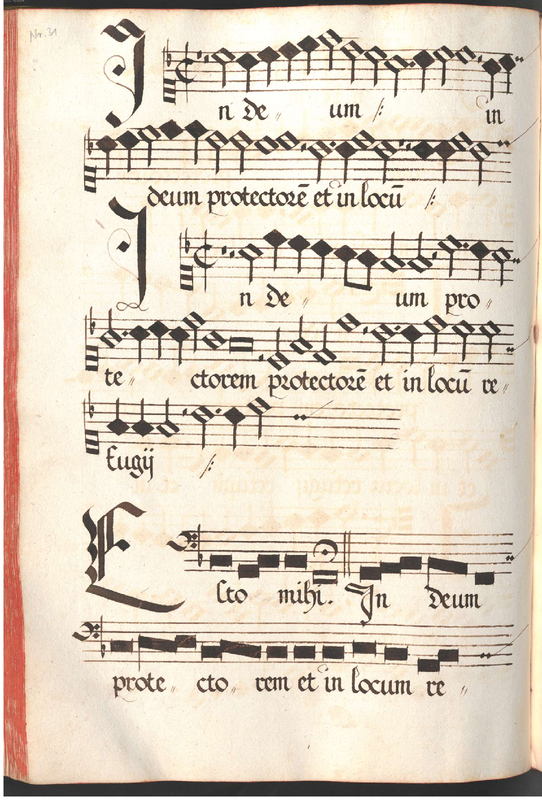 Nr. 31
In De〃 um /: in
deum protectorē et in locū /:
In De〃 um pro〃
te〃 ctorem protectorē et in locū re〃
fugij /:
Esto mihi. In deum
prote〃 cto〃 rem et in locum re〃